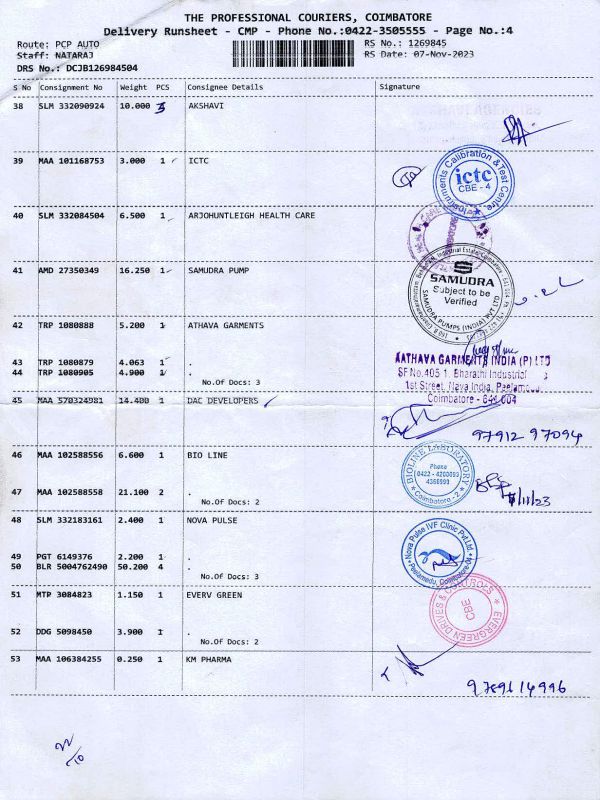 THE PROFESSIONAL COURIERS, COIMBATORE
Delivery Runsheet - CMP - Phone No.:0422-3505555 - Page No.:4
Route: PCP AUTO RS No.: 1269845
Staff: NATARAJ RS Date: 07-Nov-2023
DRS No.: DCJB126984504
S No Consignment No Weight PCS Consignee Details Signature
38 SLM 332090924 10.000 AKSHAVI
39 MAA 101168753 3.000 1 ICTC
Instruments Calibration & Test Centre
ictc
CBE - 4
40 SLM 332084504 6.500 1 ARJOHUNTLEIGH HEALTH CARE
41 AMD 27350349 16.250 1 SAMUDRA PUMP
SAMUDRA
Subject to be
Verified
SAMUDRA PUMPS (INDIA) PVT LTD
42 TRP 1080888 5.200 1 ATHAVA GARMENTS
43 TRP 1080879 4.063 1 .
44 TRP 1080905 4.900 1 .
No.Of Docs: 3
AATHAVA GARMENTS INDIA (P) LTD
SF No.405 1, Bharathi Industrial
1st Street, Nava India, Peelamedu,
Coimbatore - 641 004
45 MAA 570324981 14.400 1 DAC DEVELOPERS
97912 97094
46 MAA 102588556 6.600 1 BIO LINE
BIOLINE LABORATORY
Phone
0422 - 4200093
4366993
Coimbatore - 2
47 MAA 102588558 21.100 2 .
No.Of Docs: 2
48 SLM 332183161 2.400 1 NOVA PULSE
Nova Pulse IVF Clinic Pvt.Ltd
Peelamedu, Coimbatore-04
49 PGT 6149376 2.200 1 .
50 BLR 5004762490 50.200 4 .
No.Of Docs: 3
51 MTP 3084823 1.150 1 EVERV GREEN
EVERGREEN DRIVES & CONTROLS
CBE
52 DDG 5098450 3.900 1 .
No.Of Docs: 2
53 MAA 106384255 0.250 1 KM PHARMA
9789614996